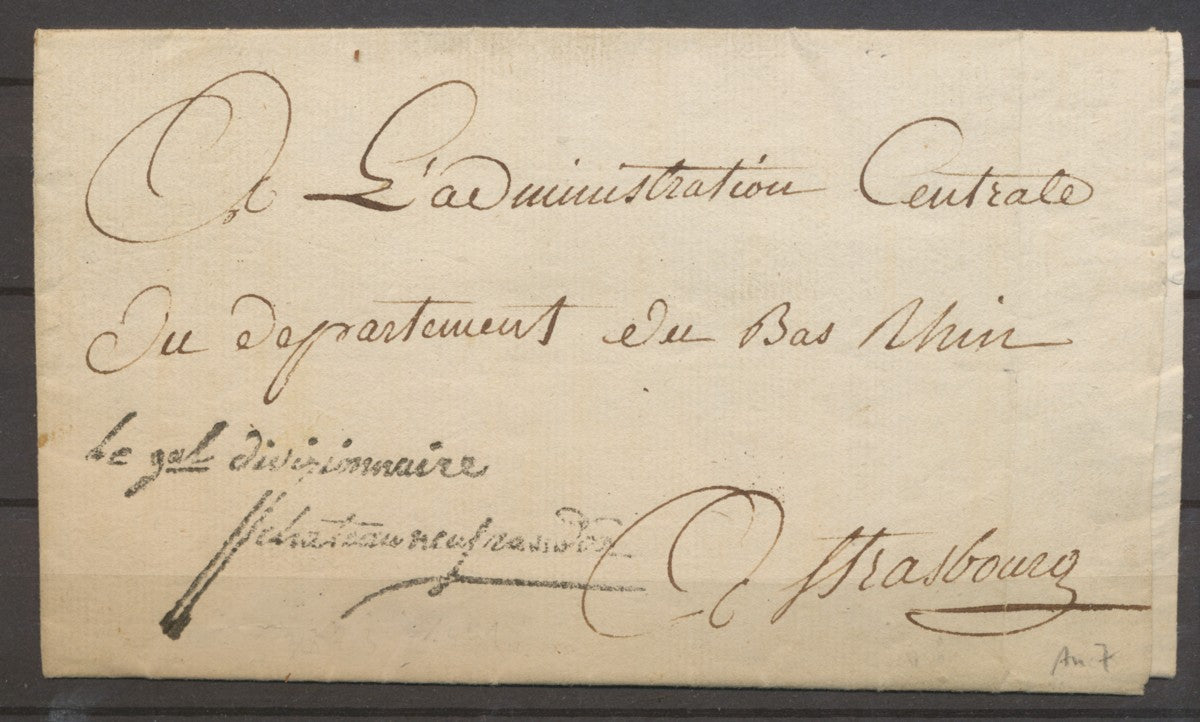 A L'administration Centrale
Du departement du Bas Rhin
le gal divizionnaire
Chateauneufrandon
A Strasbourg
An 7